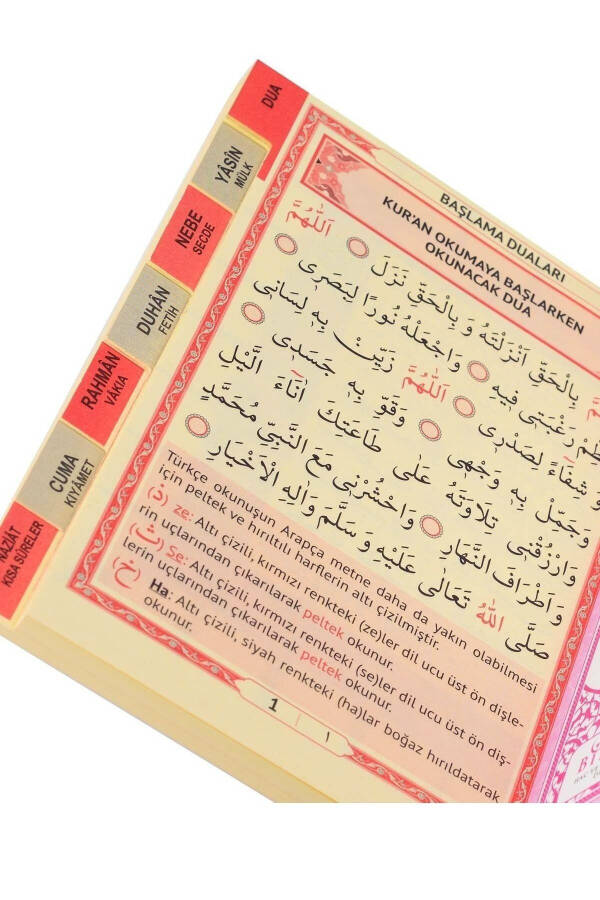 DUA
YÂSİN
MÜLK
NEBE
SECDE
DUHÂN
FETİH
RAHMÂN
VÂKIA
CUMA
KIYÂMET
KISA SÛRELER
BAŞLAMA DUALARI
KUR'AN OKUMAYA BAŞLARKEN
OKUNACAK DUA
بِالْحَقِّ اَنْزَلْتَهُ وَ بِالْحَقِّ نَزَلَ ۞ اَللّٰهُمَّ
رَغْبَتٖى فٖيهِ ۞ وَاجْعَلْهُ نُورًا لِبَصَرٖى ۞
وَ شِفَٓاءً لِصَدْرٖى ۞ اَللّٰهُمَّ زَيِّنْ بِهٖ لِسَانٖى ۞
وَجَمِّلْ بِهٖ وَجْهٖى ۞ وَقَوِّ بِهٖ جَسَدٖى ۞
وَارْزُقْنٖى تِلَاوَتَهُ عَلٰى طَاعَتِكَ اٰنَٓاءَ الَّيْلِ
وَ اَطْرَافَ النَّهَارِ ۞ وَاحْشُرْنٖى مَعَ النَّبِيِّ مُحَمَّدٍ
صَلَّى اللّٰهُ تَعَالٰى عَلَيْهِ وَ سَلَّمَ وَاٰلِهِ الْاَخْيَارِ ۞
Türkçe okunuşun Arapça metne daha da yakın olabilmesi
için peltek ve hırıltılı harflerin altı çizilmiştir.
(ذ) ze: Altı çizili, kırmızı renkteki (ze)ler dil ucu üst ön dişle-
rin uçlarından çıkarılarak peltek okunur.
(ث) Se: Altı çizili, kırmızı renkteki (se)ler dil ucu üst ön diş-
lerin uçlarından çıkarılarak peltek okunur.
(خ) Ha: Altı çizili, siyah renkteki (ha)lar boğaz hırıldatarak
okunur.
1 | ١